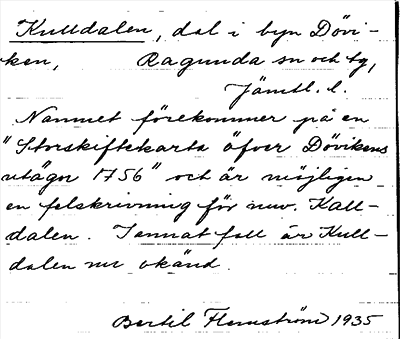 Kulldalen, dal i byn Dövi-
ken, Ragunda sn och tg,
Jämtl. l.
Namnet förekommer på en
"Storskifteskarta öfver Dövikens
utägor 1756" och är möjligen
en felskrivning för nuv. Kall-
dalen. I annat fall är Kull-
dalen nu okänd.
Bertil Flemström 1935